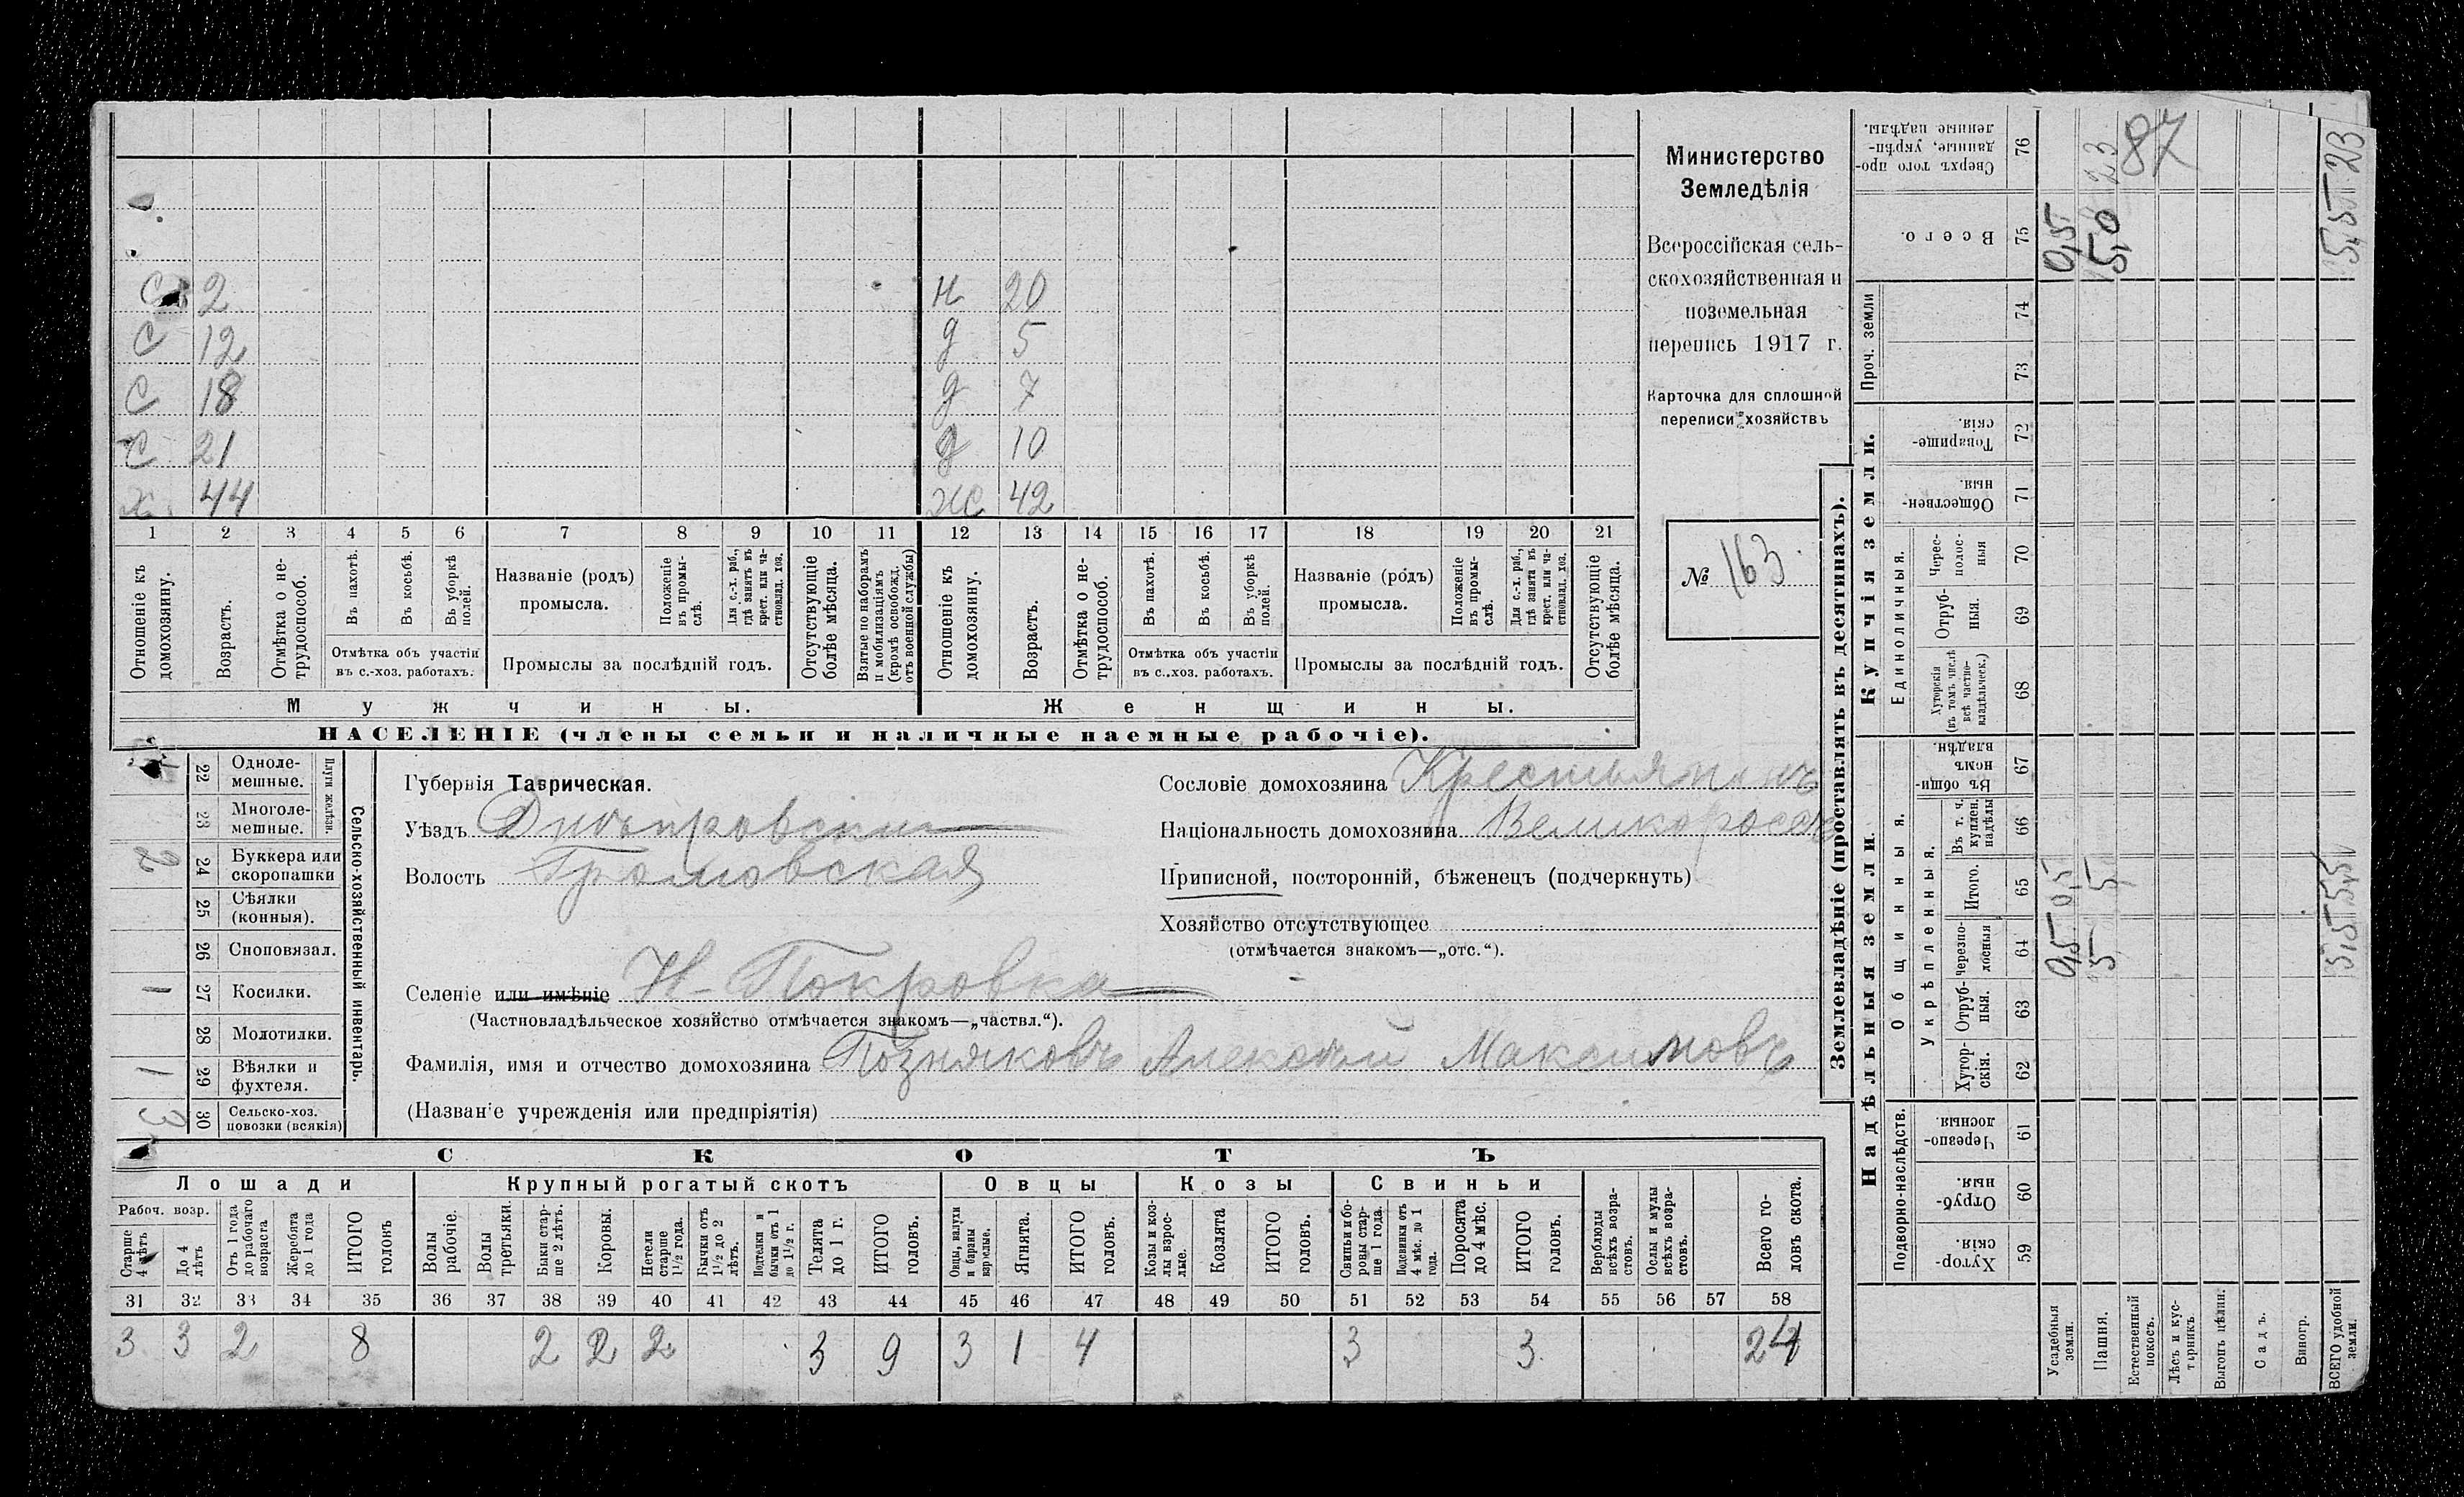 С 2 н 20
С 12 д 5
С 18 д 7
С 21 д 10
х. 44 ж 42
1 2 3 4 5 6 7 8 9 10 11 12 13 14 15 16 17 18 19 20 21
Отношеніе къ домохозяину.
Возрастъ.
Отмѣтка о не-трудоспособ.
Въ пахотѣ.
Въ косьбѣ.
Въ уборкѣ полей.
Отмѣтка объ участіи
въ с.-хоз. работахъ.
Названіе (родъ)
промысла.
Положеніе въ промы-слѣ.
Для с.-х. раб., гдѣ занятъ въ крест. или ча-стновлад. хоз.
Промыслы за послѣдній годъ.
Отсутствующіе болѣе мѣсяца.
Взятые по наборамъ и мобилизаціямъ (кромѣ освобожд. отъ военной службы)
Отношеніе къ домохозяину.
Возрастъ.
Отмѣтка о не-трудоспособ.
Въ пахотѣ.
Въ косьбѣ.
Въ уборкѣ полей.
Отмѣтка объ участіи
въ с.-хоз. работахъ.
Названіе (родъ)
промысла.
Положеніе въ промы-слѣ.
Для с.-х. раб., гдѣ занята въ крест. или ча-стновлад. хоз.
Промыслы за послѣдній годъ.
Отсутствующіе болѣе мѣсяца.
Мужчины. Женщины.
НАСЕЛЕНІЕ (члены семьи и наличные наемные рабочіе).
Министерство
Земледѣлія
Всероссійская сель-
скохозяйственная и
поземельная
перепись 1917 г.
Карточка для сплошной
переписи хозяйствъ
№ 163
Сельско-хозяйственный инвентарь.
Плуги желѣзн.
22 Однолемешные.
23 Многолемешные.
24 Буккера или скоропашки 2
25 Сѣялки (конныя).
26 Сноповязал.
27 Косилки. 1
28 Молотилки.
29 Вѣялки и фухтеля. 1
30 Сельско-хоз. повозки (всякія) 3
Губернія Таврическая.
Уѣздъ Днѣпровскій
Волость Громовская
Селеніе или имѣніе Н-Покровка
(Частновладѣльческое хозяйство отмѣчается знакомъ—„частвл.“).
Фамилія, имя и отчество домохозяина Позняковъ Алексѣй Максимовъ
(Названіе учрежденія или предпріятія)
Сословіе домохозяина Крестьянинъ
Національность домохозяина Великороссъ
Приписной, посторонній, бѣженецъ (подчеркнуть)
Хозяйство отсутствующее
(отмѣчается знакомъ—„отс.“).
СКОТЪ
Лошади Крупный рогатый скотъ Овцы Козы Свиньи
Рабоч. возр.
Старше 4 лѣтъ
До 4 лѣтъ
Отъ 1 года до рабочаго возраста
Жеребята до 1 года
ИТОГО головъ
Волы рабочіе.
Волы третьяки.
Быки стар-ше 2 лѣтъ.
Коровы.
Нетели старше 1½ года.
Бычки отъ 1½ до 2 лѣтъ.
Подтелки и бычки отъ 1 до 1½ г.
Телята до 1 г.
ИТОГО головъ.
Овцы, валухи и бараны взрослые.
Ягнята.
ИТОГО головъ.
Козы и коз-лы взрос-лые.
Козлята
ИТОГО головъ.
Свиньи и бо-ровы стар-ше 1 года.
Подсвинки отъ 4 мѣс. до 1 года.
Поросята до 4 мѣс.
ИТОГО головъ.
Верблюды всѣхъ возра-стовъ.
Ослы и мулы всѣхъ возра-стовъ.
Всего го-ловъ скота.
31 32 33 34 35 36 37 38 39 40 41 42 43 44 45 46 47 48 49 50 51 52 53 54 55 56 57 58
3 3 2 8 2 2 2 3 9 3 1 4 3 3 24
Землевладѣніе (проставлять въ десятинахъ).
Надѣльныя земли. Купчія земли. Проч. земли
Подворно-наслѣдств.
Общинныя.
Укрѣпленныя.
Единоличныя.
59 Хутор-скія.
60 Отруб-ныя.
61 Черезпо-лосныя
62 Хутор-скія.
63 Отруб-ныя.
64 Черезпо-лосныя
65 Итого.
66 Въ т. ч. куплен. надѣлы
67 Въ общин-номъ владѣн.
68 Хуторскія (въ томъ числѣ всѣ частно-владѣльческ.)
69 Отруб-ныя.
70 Черес-полос-ныя
71 Обществен-ныя.
72 Товарище-скія.
73
74
75 Всего.
76 Сверхъ того про-данные, укрѣп-ленные надѣлы.
Усадебныя земли. 0,5 0,5 0,5
Пашня. 5 5 5,0 23
Естественный покосъ. 87
Лѣсъ и кус-тарникъ.
Выгонъ цѣлин.
Садъ.
Виногр.
ВСЕГО удобной земли. 5,5 5,5 5,5 23